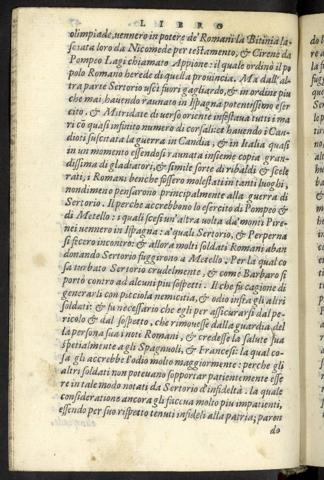 LIBRO
olimpiade, uennero in potere de' Romani la Bitinia la-
sciata loro da Nicomede per testamento, & Cirene da
Pompeo Lagi chiamato Appione: il quale ordinò il po
polo Romano herede di quella prouincia. Ma dall'al-
tra parte Sertorio uscì fuori gagliardo, & in ordine piu
che mai, hauendo raunato in Ispagna potentissimo eser
cito. & Mitridate di uerso oriente infestaua tutti i ma
ri cõ quasi infinito numero di corsali: et hauendo i Can-
dioti suscitata la guerra in Candia, & in Italia quasi
in un momento essendosi raunata insieme copia gran-
dissima di gladiatori, & simile sorte di ribaldi & scele
rati; i Romani benche fossero molestati in tanti luoghi,
nondimeno pensarono principalmente alla guerra di
Sertorio. Il perche accrebbono lo esercito di Pompeo &
di Metello: i quali scesi un'altra uolta da' monti Pire-
nei uennero in Ispagna: a' quali Sertorio, & Perperna
si fecero incontro: & allora molti soldati Romani aban
donando Sertorio fuggirono a Metello. Per la qual co
sa turbato Sertorio crudelmente, & come Barbaro si
portò contro ad alcuni piu sospetti. Il che fu cagione di
generarli con picciola nemicitia, & odio infra gli altri
soldati: & fu necessario che egli per assicurarsi dal pe-
ricolo & dal sospetto, che rimouesse dalla guardia del
la persona sua i noti Romani, & credesse la salute sua
spetialmente a gli Spagnuoli, & Francesi: la qual co-
sa gli accrebbe l'odio molto maggiormente: perche gli
altri soldati non poteuano sopportar patientemente esse
re in tale modo notati da Sertorio d'infideltà. la quale
consideratione ancora gli faceua molto piu impatienti,
essendo per suo rispetto tenuti infideli alla patria; paren
do